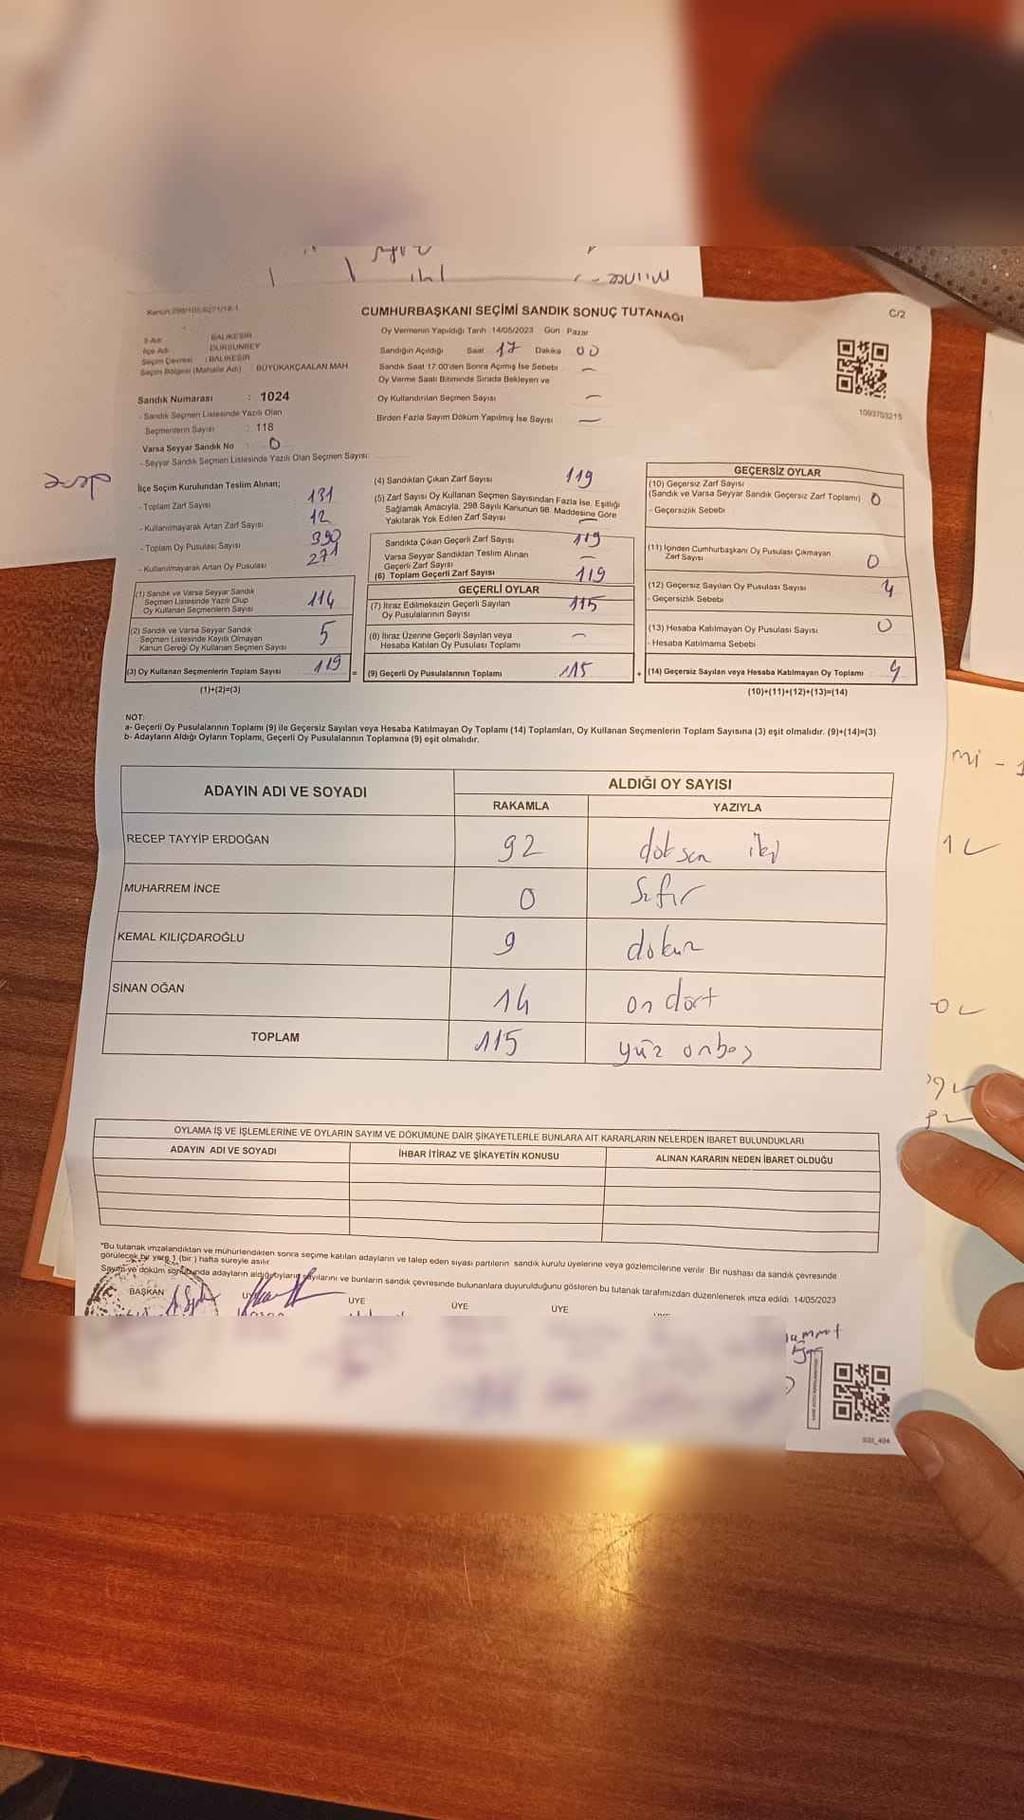 CUMHURBAŞKANI SEÇİMİ SANDIK SONUÇ TUTANAĞI
C/2
Oy Vermenin Yapıldığı Tarih :14/05/2023 Gün : Pazar
İl Adı : BALIKESİR
İlçe Adı : DURSUNBEY
Seçim Çevresi : BALIKESİR
Seçim Bölgesi (Mahalle Adı) : BÜYÜKAKÇAALAN MAH.
Sandığın Açıldığı Saat 17 Dakika 00
Sandık Saat 17:00'den Sonra Açılmış İse Sebebi –
Oy Verme Saati Bitiminde Sırada Bekleyen ve
Oy Kullandırılan Seçmen Sayısı –
Birden Fazla Sayım Döküm Yapılmış İse Sayısı –
1093703215
Sandık Numarası : 1024
- Sandık Seçmen Listesinde Yazılı Olan
Seçmenlerin Sayısı : 118
Varsa Seyyar Sandık No : 0
- Seyyar Sandık Seçmen Listesinde Yazılı Olan Seçmen Sayısı:
İlçe Seçim Kurulundan Teslim Alınan;
- Toplam Zarf Sayısı 131
- Kullanılmayarak Artan Zarf Sayısı 12
- Toplam Oy Pusulası Sayısı 390
- Kullanılmayarak Artan Oy Pusulası 271
(1) Sandık ve Varsa Seyyar Sandık
Seçmen Listesinde Yazılı Olup
Oy Kullanan Seçmenlerin Sayısı 114
(2) Sandık ve Varsa Seyyar Sandık
Seçmen Listesinde Kayıtlı Olmayan
Kanun Gereği Oy Kullanan Seçmen Sayısı 5
(3) Oy Kullanan Seçmenlerin Toplam Sayısı 119
(1)+(2)=(3)
(4) Sandıktan Çıkan Zarf Sayısı 119
(5) Zarf Sayısı Oy Kullanan Seçmen Sayısından Fazla İse, Eşitliği
Sağlamak Amacıyla, 298 Sayılı Kanunun 98. Maddesine Göre
Yakılarak Yok Edilen Zarf Sayısı –
Sandıkta Çıkan Geçerli Zarf Sayısı 119
Varsa Seyyar Sandıktan Teslim Alınan
Geçerli Zarf Sayısı –
(6) Toplam Geçerli Zarf Sayısı 119
GEÇERLİ OYLAR
(7) İtiraz Edilmeksizin Geçerli Sayılan
Oy Pusulalarının Sayısı 115
(8) İtiraz Üzerine Geçerli Sayılan veya
Hesaba Katılan Oy Pusulası Toplamı –
= (9) Geçerli Oy Pusulalarının Toplamı 115
GEÇERSİZ OYLAR
(10) Geçersiz Zarf Sayısı
(Sandık ve Varsa Seyyar Sandık Geçersiz Zarf Toplamı) 0
- Geçersizlik Sebebi
(11) İçinden Cumhurbaşkanı Oy Pusulası Çıkmayan
Zarf Sayısı 0
(12) Geçersiz Sayılan Oy Pusulası Sayısı 4
- Geçersizlik Sebebi
(13) Hesaba Katılmayan Oy Pusulası Sayısı 0
- Hesaba Katılmama Sebebi
+ (14) Geçersiz Sayılan veya Hesaba Katılmayan Oy Toplamı 4
(10)+(11)+(12)+(13)=(14)
NOT:
a- Geçerli Oy Pusulalarının Toplamı (9) ile Geçersiz Sayılan veya Hesaba Katılmayan Oy Toplamı (14) Toplamları, Oy Kullanan Seçmenlerin Toplam Sayısına (3) eşit olmalıdır. (9)+(14)=(3)
b- Adayların Aldığı Oyların Toplamı, Geçerli Oy Pusulalarının Toplamına (9) eşit olmalıdır.
ADAYIN ADI VE SOYADI ALDIĞI OY SAYISI
RAKAMLA YAZIYLA
RECEP TAYYİP ERDOĞAN 92 doksan iki
MUHARREM İNCE 0 Sıfır
KEMAL KILIÇDAROĞLU 9 dokuz
SİNAN OĞAN 14 on dört
TOPLAM 115 yüz onbeş
OYLAMA İŞ VE İŞLEMLERİNE VE OYLARIN SAYIM VE DÖKÜMÜNE DAİR ŞİKAYETLERLE BUNLARA AİT KARARLARIN NELERDEN İBARET BULUNDUKLARI
ADAYIN ADI VE SOYADI İHBAR İTİRAZ VE ŞİKAYETİN KONUSU ALINAN KARARIN NEDEN İBARET OLDUĞU
*Bu tutanak imzalandıktan ve mühürlendikten sonra seçime katılan adayların ve talep eden siyasi partilerin sandık kurulu üyelerine veya gözlemcilerine verilir. Bir nüshası da sandık çevresinde
görülecek bir yere 1 (bir) hafta süreyle asılır.
Sayım ve döküm sonucunda adayların aldığı oyların sayılarını ve bunların sandık çevresinde bulunanlara duyurulduğunu gösteren bu tutanak tarafımızdan düzenlenerek imza edildi. 14/05/2023
BAŞKAN ÜYE ÜYE ÜYE